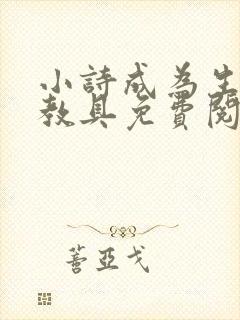 小詩成為生
教具免費閱
蓄亞戈